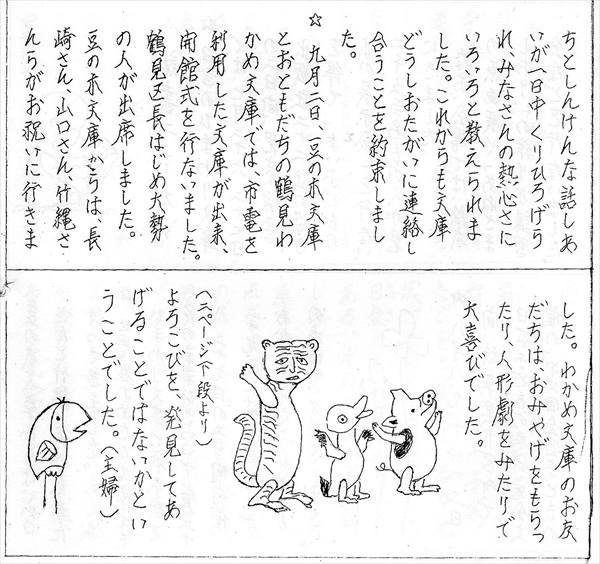 ちとしんけんな話しあ
いが一日中くりひろげら
れ、みなさんの熱心さに
いろいろと教えられま
した。これからも文庫
どうしおたがいに連絡し
合うことを約束しまし
た。
☆ 九月二日、豆の木文庫
とおともだちの鶴見わ
かめ文庫では、市電を
利用した文庫が出来、
開館式を行ないました。
鶴見区長はじめ大勢
の人が出席しました。
豆の木文庫からは、長
崎さん、山口さん、竹縄さ
んらがお祝いに行きま
した。わかめ文庫のお友
だちは、おみやげをもらっ
たり、人形劇をみたりで
大喜びでした。
(二ページ下段より)
よろこびを、発見してあ
げることではないかとい
うことでした。(主婦)